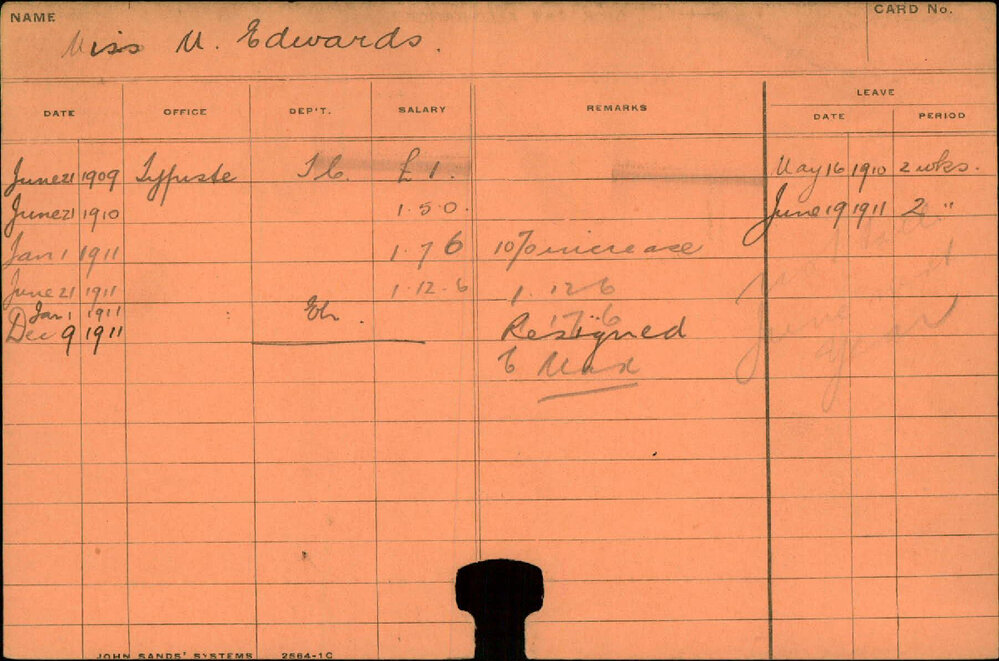 NAME
CARD No.
Miss M. Edwards.
DATE OFFICE DEP'T. SALARY REMARKS LEAVE
DATE PERIOD
June 21 1909 Typiste £1. May 16 1910 2 wks.
June 21 1910 1.5.0. June 19 1911 2 "
Jan 1 1911 1.7 6 10% increase
June 21 1911 1.12.6 1. 12.6
Jan 1 1911
Dec 9 1911 Resigned
JOHN SANDS' SYSTEMS 2564-1C